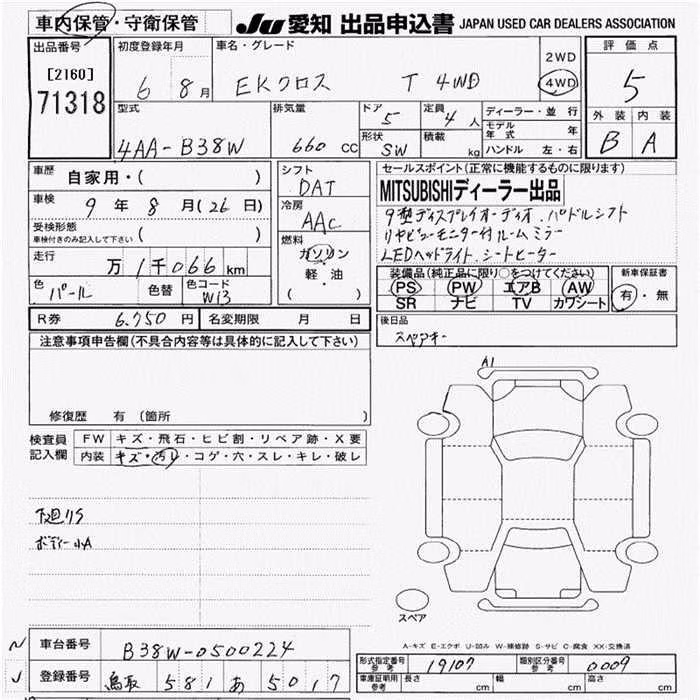 車内保管・守衛保管 JU 愛知 出品申込書 JAPAN USED CAR DEALERS ASSOCIATION
出品番号 初度登録年月 車名・グレード 評価点
[2160] 6 8月 EKクロス T 4WD 2WD 4WD 5
71318 型式 排気量 ドア 定員 ディーラー・並行 外装 内装
5 4人 モデル年式 年
4AA-B38W 660 CC 形状 SW 積載 kg ハンドル 左・右 B A
車歴 自家用・( ) シフト DAT セールスポイント(正常に機能するものに限ります)
MITSUBISHIディーラー出品
車検 9年 8月(26日) 冷房 AAC 9型ディスプレイオーディオ、パドルシフト
受検形態 車検付きのみ記入して下さい ( ) 燃料 リヤビューモニター付ルームミラー
走行 万1千066km ガソリン LEDヘッドライト、シートヒーター
軽・油 装備品(純正品に限り○をつけてください) 新車保証書
色 パール 色替 色コード W13 ( ) PS PW エアB AW 有・無
SR ナビ TV カワシート
R券 6,750円 名変期限 月 日 後日品
注意事項申告欄(不具合内容等は具体的に記入して下さい) スペアキー
A1
修復歴 有(箇所
検査員 FW キズ・飛石・ヒビ割・リペア跡・X要
記入欄 内装 キズ・汚レ・コゲ・穴・スレ・キレ・破レ
下廻りS
ボディー小A
スペア
A-キズ E-エクボ U-凹み W-補修跡 S-サビ C-腐食 XX-交換済
N 車台番号 B38W-0500224
形式指定番号 参考 19107 類別区分番号 参考 0009
J 登録番号 鳥取 581 あ 5017 車庫証明用 参考 長さ cm 幅 cm 高さ cm